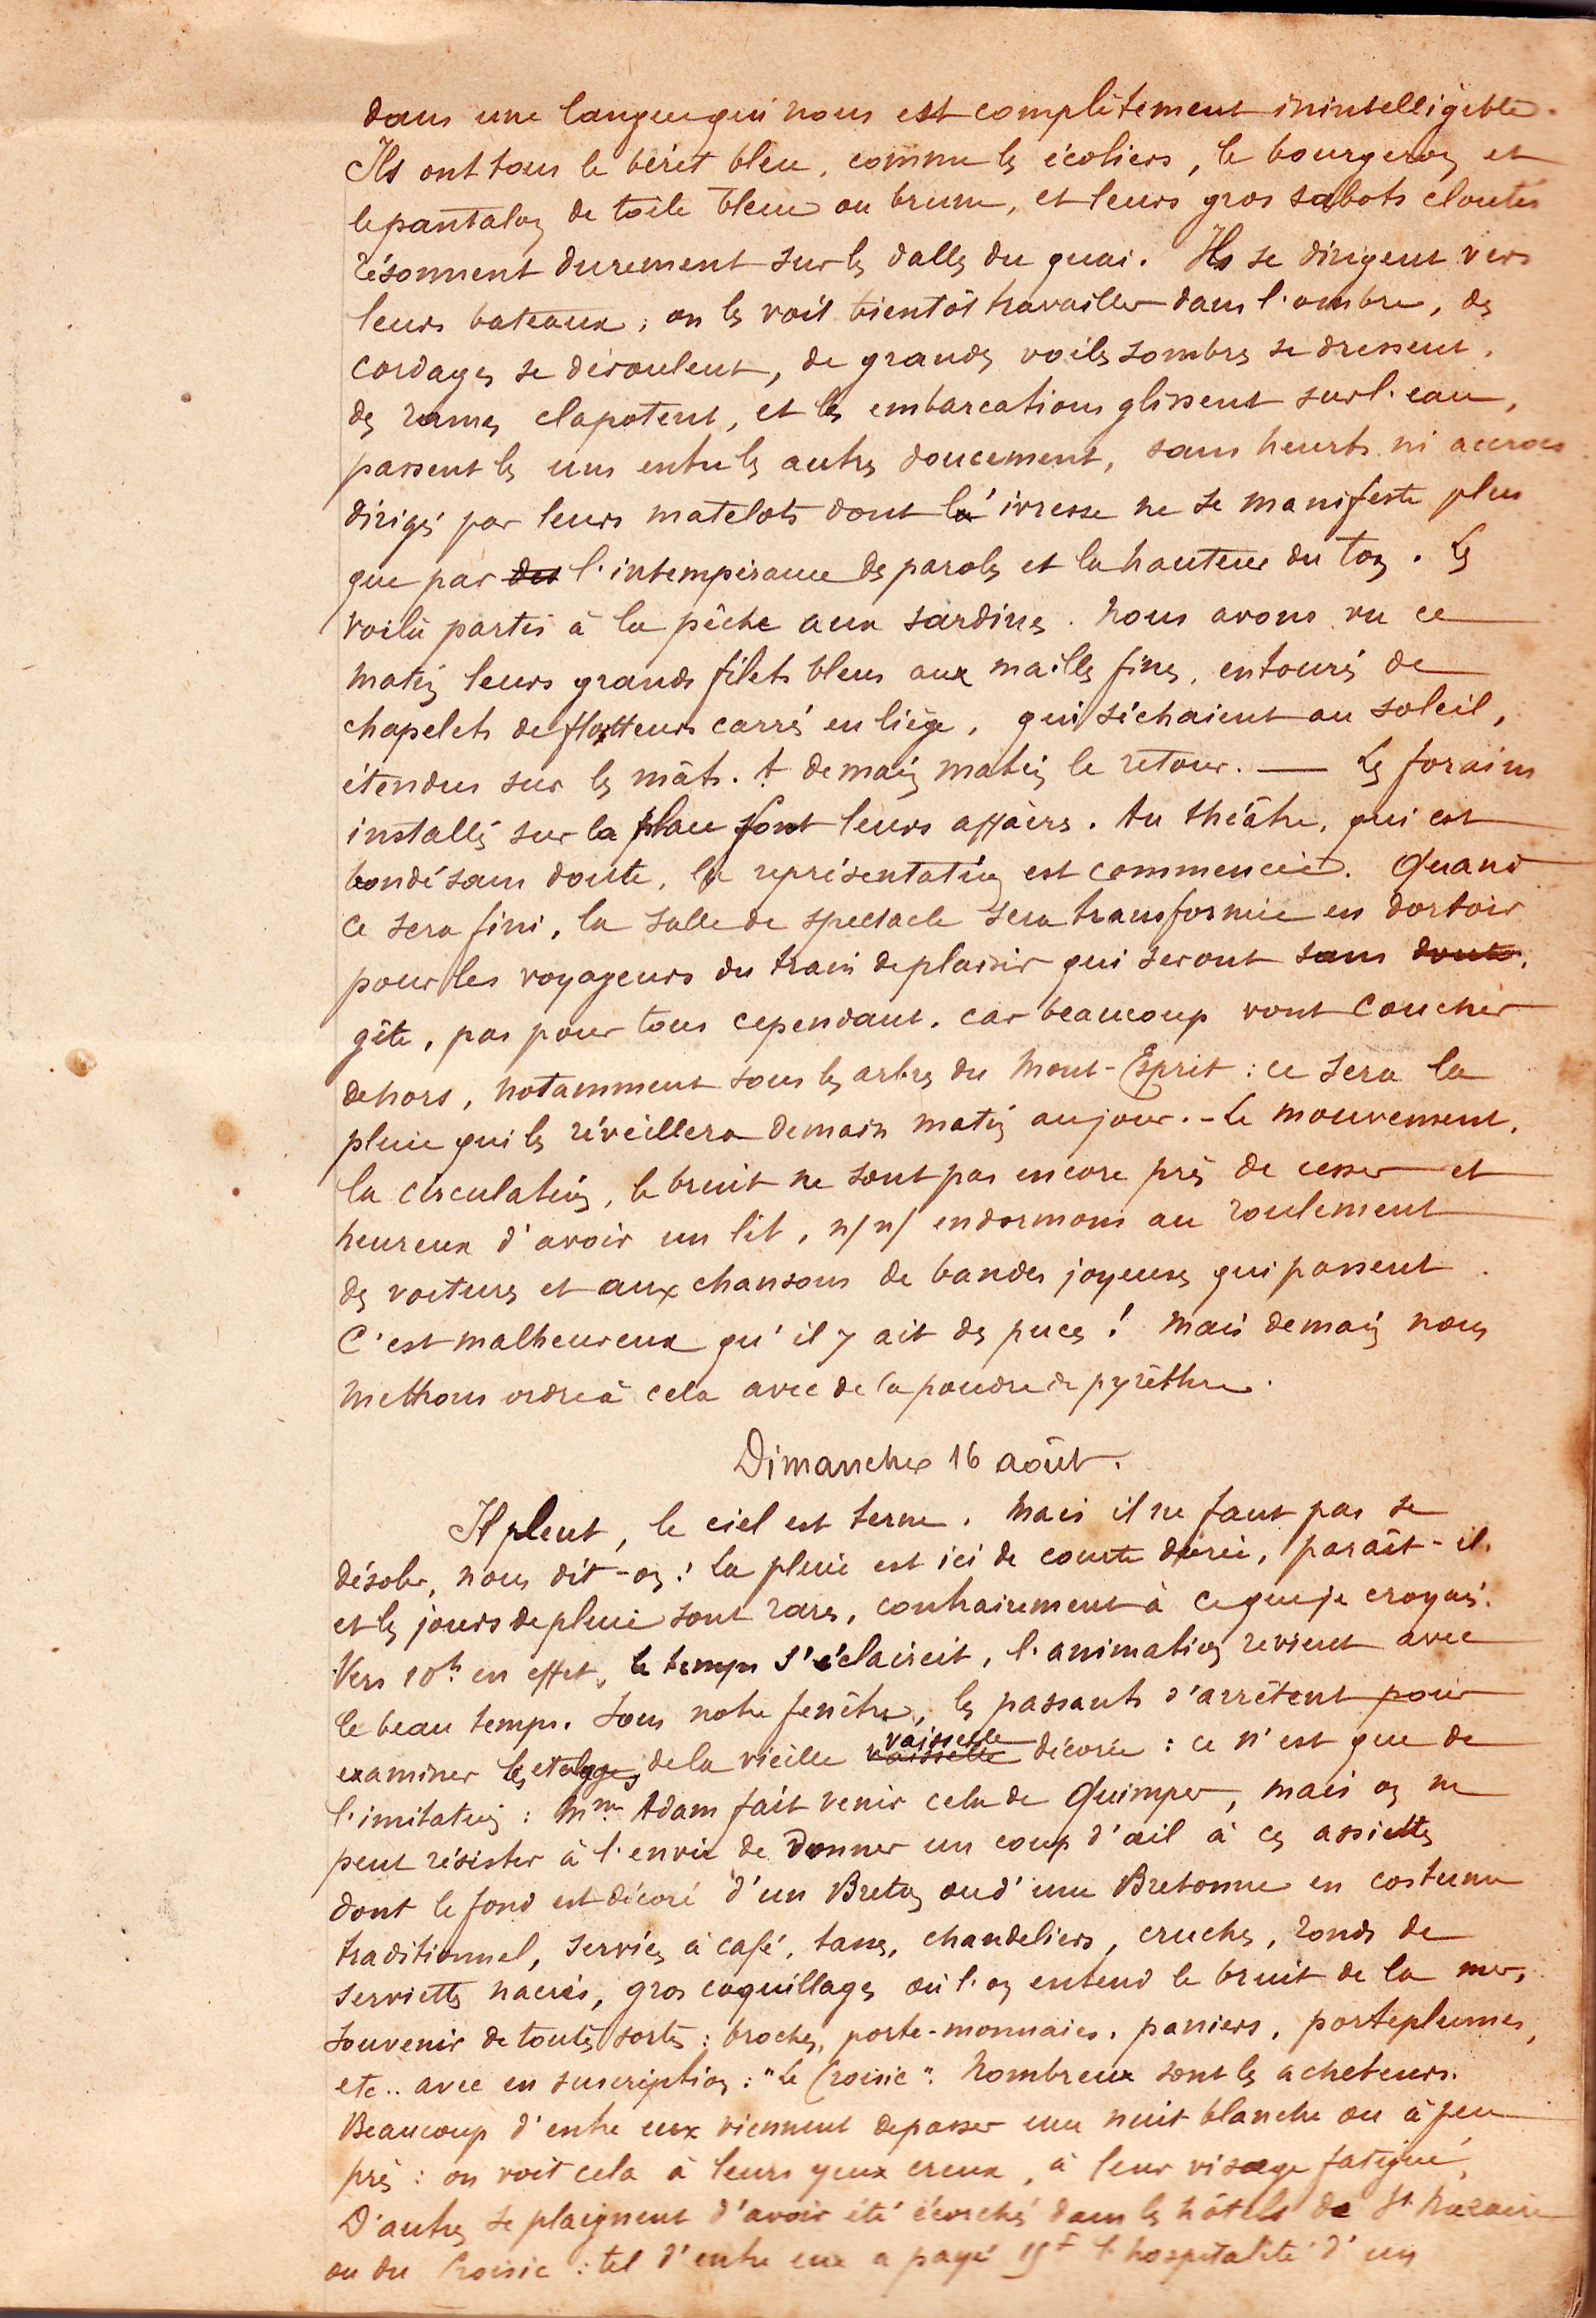 dans une langue qui nous est complètement inintelligible.
Ils ont tous le béret bleu, comme les écoliers, le bourgeron et
le pantalon de toile bleue ou brune, et leurs gros sabots cloutés
résonnent durement sur les dalles du quai. Ils se dirigent vers
leurs bateaux ; on les voit bientôt travailler dans l'ombre, des
cordages se déroulent, de grandes voiles sombres se dressent,
des rames clapotent, et les embarcations glissent sur l'eau,
passent les uns entre les autres doucement, sans heurts ni accrocs
dirigés par leurs matelots dont l'ivresse ne se manifeste plus
que par des l'intempérance des paroles et la hauteur du ton. Les
voilà partis à la pêche aux sardines. Nous avons vu ce
matin leurs grands filets bleus aux mailles fines, entourés de
chapelets de flotteurs carrés en liège, qui séchaient au soleil,
étendus sur les mâts. A demain matin le retour. — Les forains
installés sur la place font leurs affaires. Au théâtre, qui est
bondé sans doute, la représentation est commencée. Quand
ce sera fini, la salle de spectacle sera transformée en dortoir
pour les voyageurs du train de plaisir qui seront sans doute,
gîte, pas pour tous cependant, car beaucoup vont coucher
dehors, notamment sous les arbres du Mont-Esprit : ce sera la
pluie qui les réveillera demain matin au jour. - Le mouvement,
la circulation, le bruit ne sont pas encore près de cesser et
heureux d'avoir un lit, n/ n/ endormons au roulement
des voitures et aux chansons de bandes joyeuses qui passent.
C'est malheureux qu'il y ait des puces ! Mais demain nous
mettrons ordre à cela avec de la poudre de pyrèthre.
Dimanche 16 août.
Il pleut, le ciel est terne. Mais il ne faut pas se
désoler, nous dit-on : la pluie est ici de courte durée, paraît-il,
et les jours de pluie sont rares, contrairement à ce que je croyais.
Vers 10h en effet, le temps s'éclaircit, l'animation revient avec
le beau temps. Sous notre fenêtre, les passants s'arrêtent pour
examiner les étalages de la vieille vaisselle vaisselle décorée : ce n'est que de
l'imitation : Mme Adam fait venir cela de Quimper, mais on ne
peut résister à l'envie de donner un coup d'œil à ces assiettes
dont le fond est décoré d'un Breton ou d'une Bretonne en costume
traditionnel, services à café, tasses, chandeliers, cruches, ronds de
serviettes nacrés, gros coquillages où l'on entend le bruit de la mer,
souvenir de toutes sortes : broches, porte-monnaies, paniers, porteplumes,
etc.. avec en suscription : "Le Croisic". Nombreux sont les acheteurs.
Beaucoup d'entre eux viennent de passer une nuit blanche ou à peu
près : on voit cela à leurs yeux creux, à leur visage fatigué,
D'autres se plaignent d'avoir été écorchés dans les hôtels de St Nazaire
ou du Croisic : tel d'entre eux a payé 15f l'hospitalité d'un